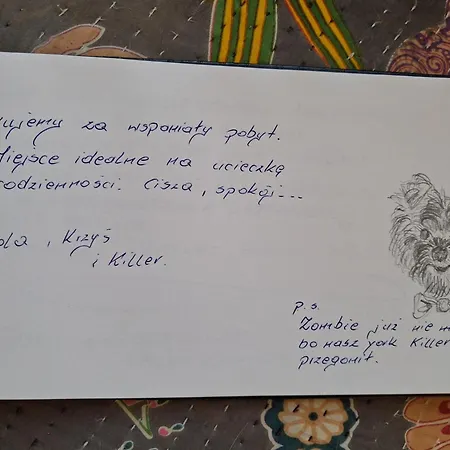 ujemy za wspaniały pobyt.
Miejsce idealne na ucieczkę
codzienności. Cisza, spokój...
ola, Krzyś
i Killer.
p.s.
Zombie już nie m
bo nasz york Killer
przegonił.